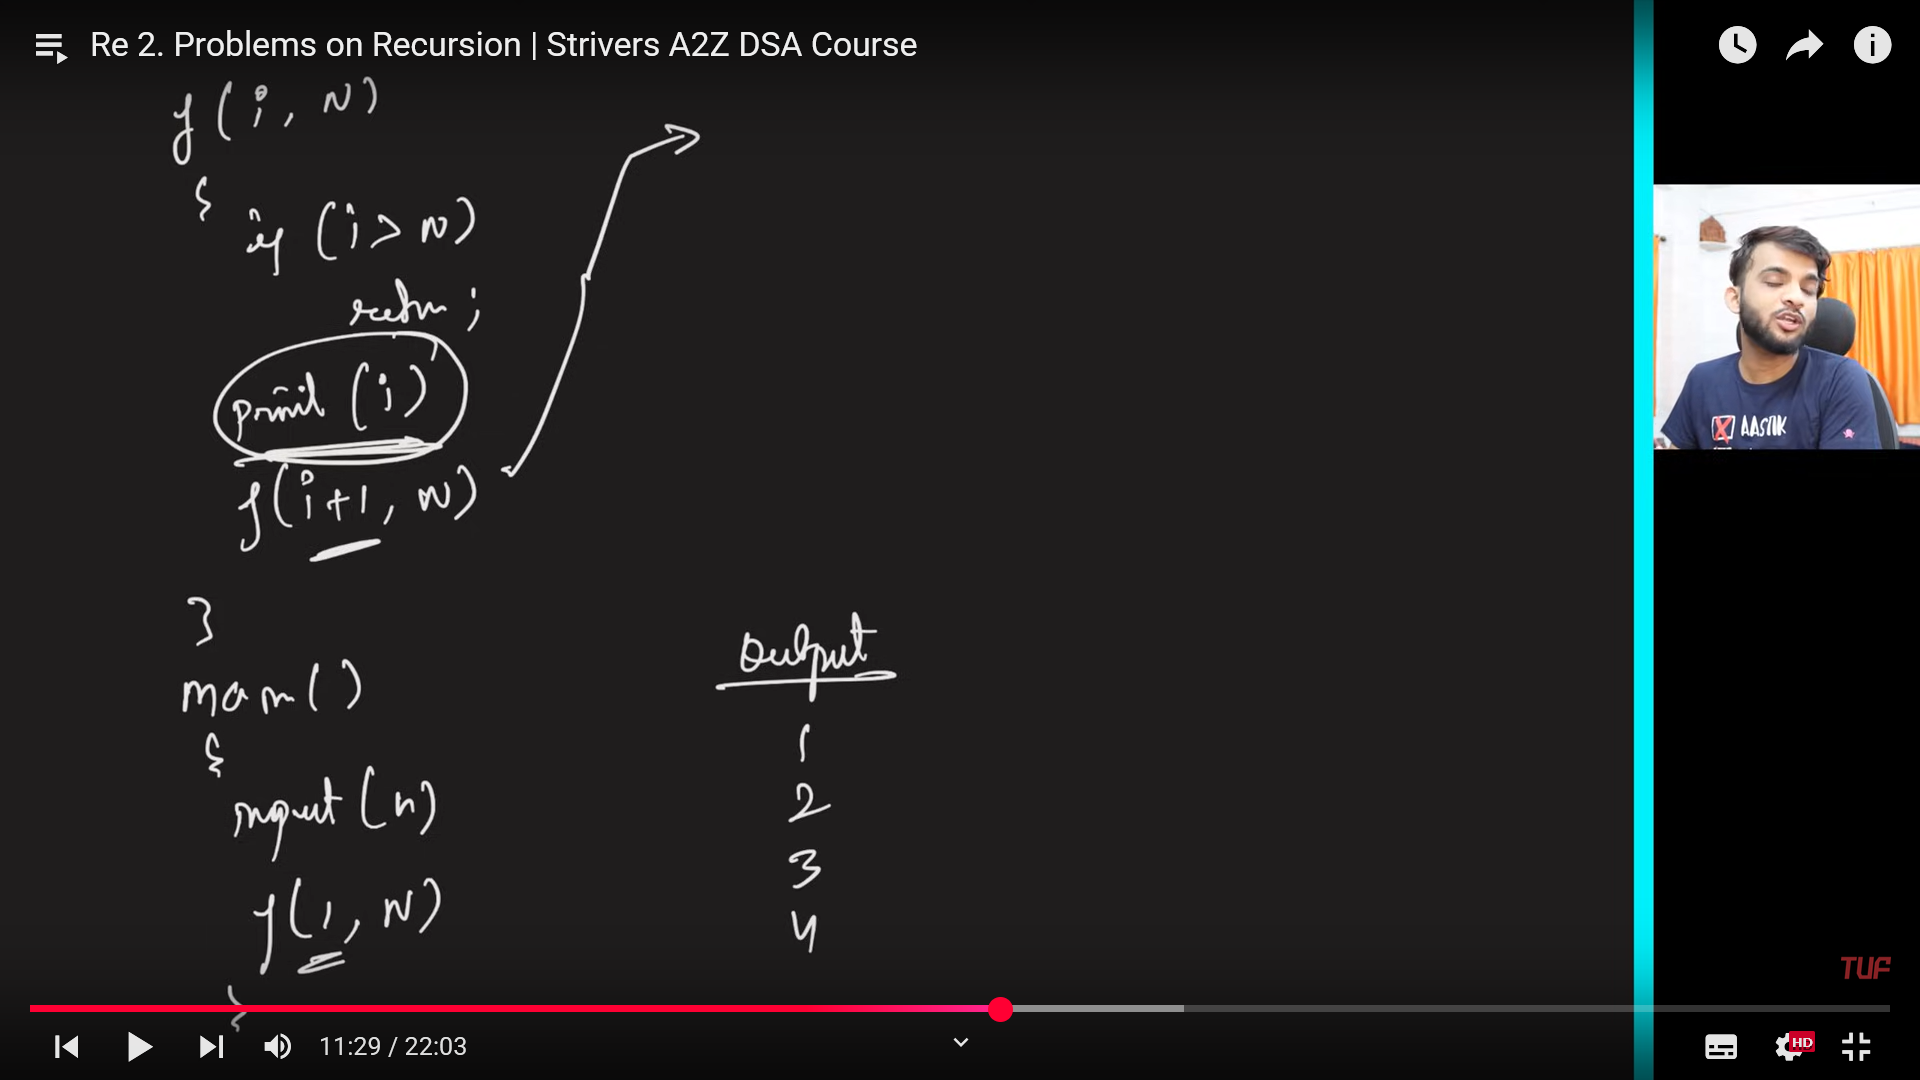 Re 2. Problems on Recursion | Strivers A2Z DSA Course
f(i, N)
{
if (i > N)
return ;
print (i)
f(i+1, N)
}
main()
{
input(n)
f(1, N)
}
Output
1
2
3
4
AASTIK
TUF
11:29 / 22:03
HD